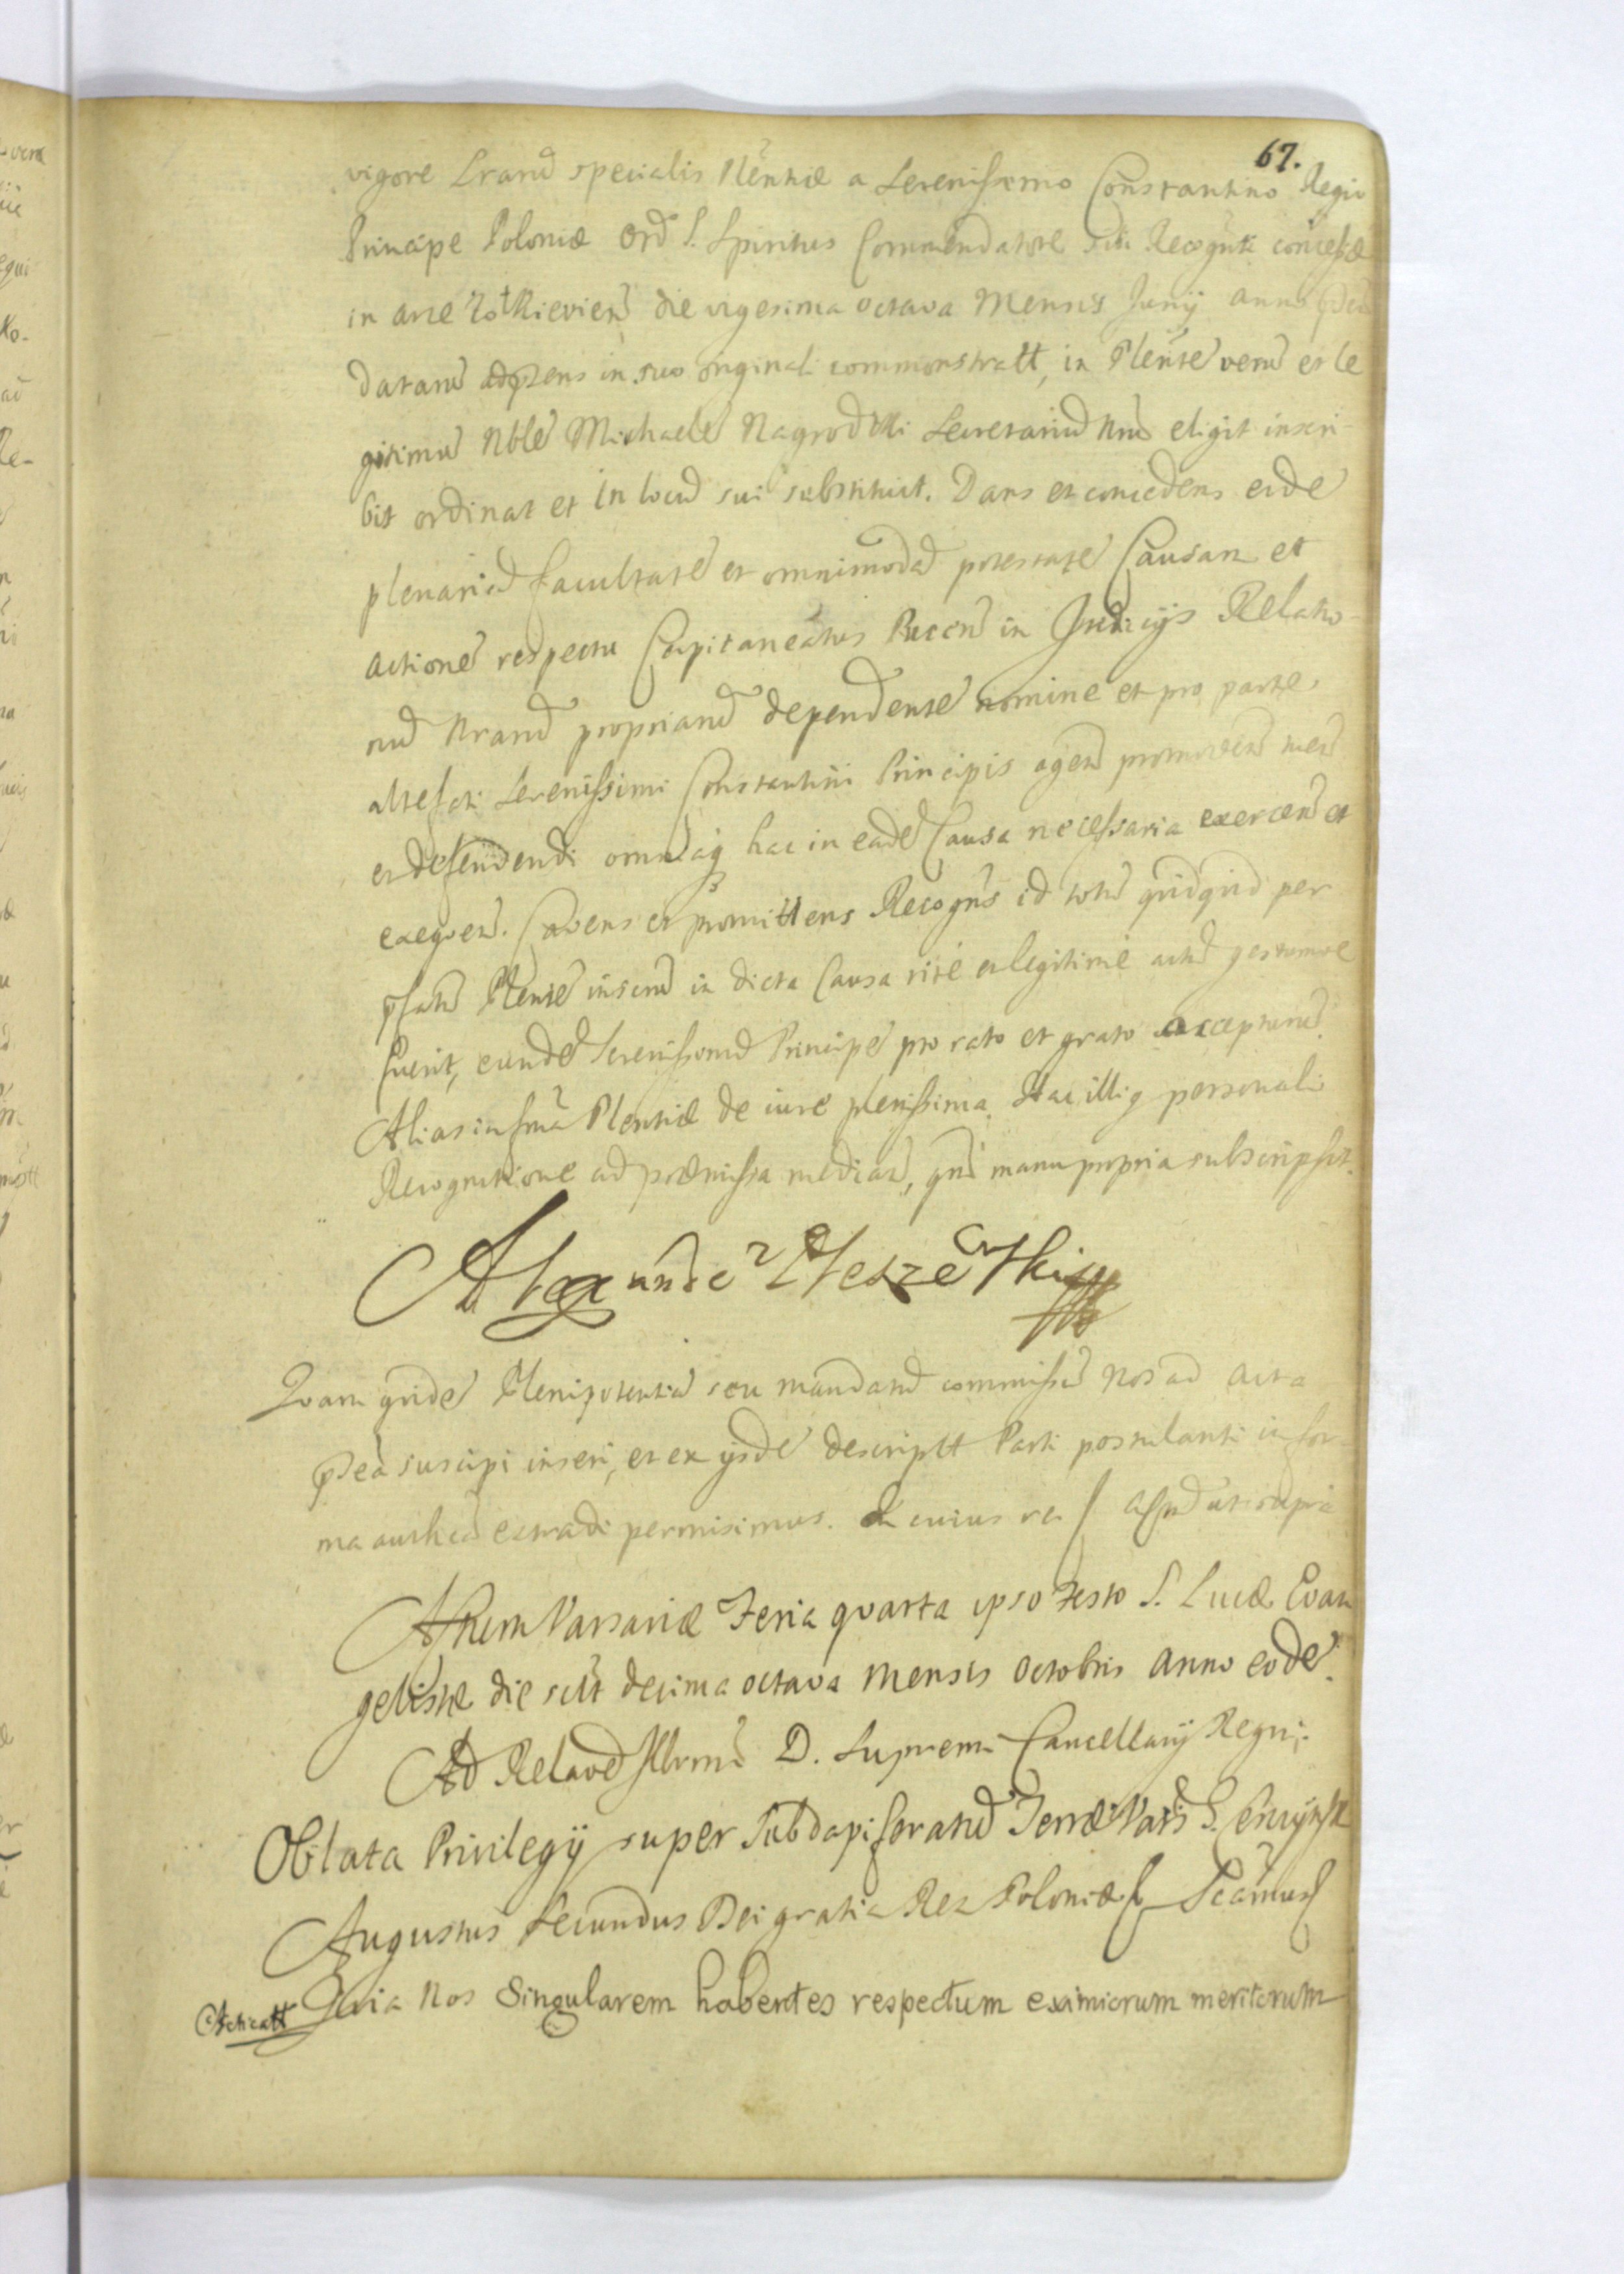 67.
vigore Lraru specialis Plentiæ a Serenissimo Constantino Regio
Principe Poloniæ Ord S. Spiritus Commendatore sibi Recognti concessæ
in arce Zołkievien die vigesima octava Mensis Junij anno
dataru adptens in suo originali commonstratt, in Plente veru et le
gitimu Nble Michaele Nagrodzki Secretariu Nru eligit inscri-
bit ordinat et in locu sui substituit. Dans et concedens eide
plenaria facultate et omnimoda potestate Causam et
actione respectu Capitaneatus Pucen in Judicijs Relatio-
nu Nraru propriaru dependente nomine et pro parte
altefati Serenissimi Constantini Principis agen promoven
et defendendi omniaq hac in eade Causa necessaria exercen et
exequen. Cavens et promittens Recogns id totu quidquid per
pfatu Plente insertu in dicta Causa rite et legitime actu gestumve
fuerit, eunde Serenissimu Principe pro rato et grato accepturu.
Alias in fma Plentiæ de iure plenissima. Hac illiq personali
Recognitione ad præmissa median, qm manu propria subscripsit.
Alexander
Qvam qvide Plenipotentia seu mandatu commissu Nos ad Acta
pntia suscipi inseri, et ex ijsde descriptt Parti postulanti in for-
ma authen extradi permisimus. In cuius rei ut supra
Aktem Varsaviæ Feria qvarta ipso Festo S. Lucæ Evan
gelistæ die scilt decima octava Mensis Octobris Anno eode.
Ad Relaoe Illrmi D. Supremi Cancellarij Regni.
Oblata Privilegij super Subdapiferatu Terræ Vars G.
Augustus Secundus Dei gratia Rex Poloniæ
Qvia Nos Singularem habentes respectum eximiorum meritorum